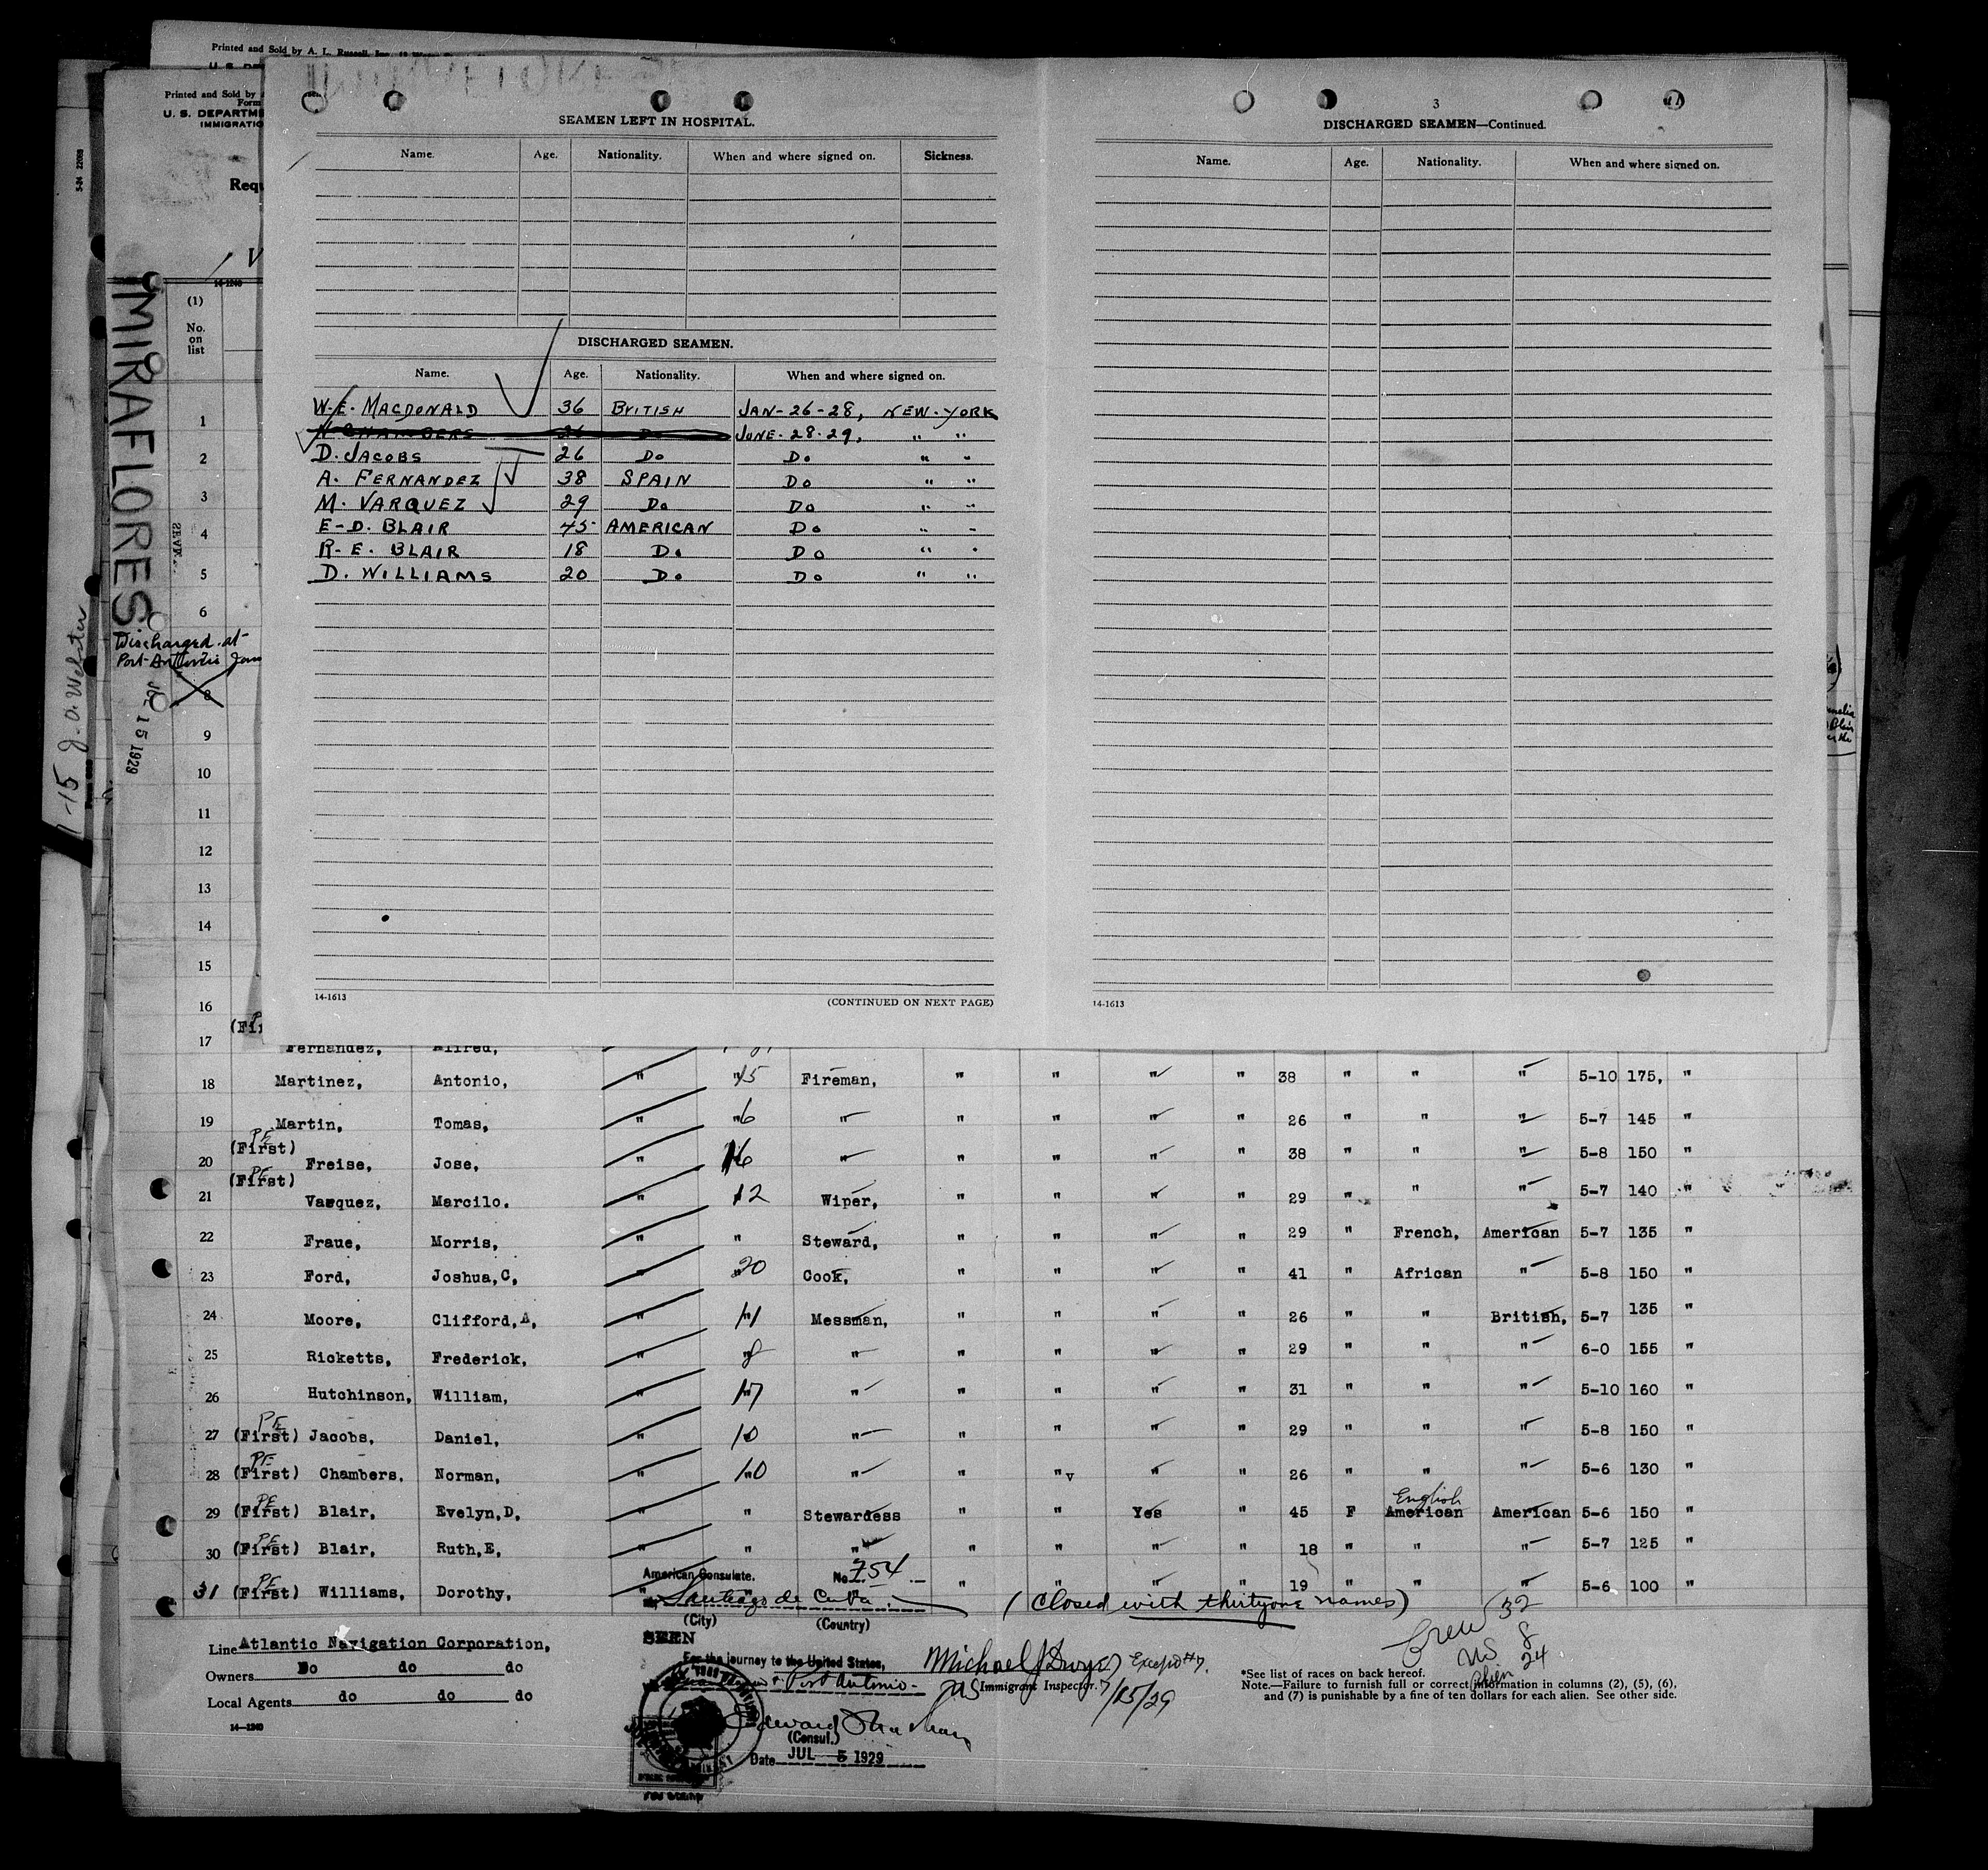 Printed and Sold by A. L. Russell, Inc.
Printed and Sold by
Form
U. S. DEPARTME
IMMIGRATIO
Requ
14-1240
(1)
No.
on
list
MIRAFLORES
Discharged at
Port Antonio Jam
JUL 15 1929
J. A. Webster
SEAMEN LEFT IN HOSPITAL.
Name. Age. Nationality. When and where signed on. Sickness.
DISCHARGED SEAMEN.
Name. Age. Nationality. When and where signed on.
W. E. MACDONALD 36 BRITISH JAN-26-28, NEW-YORK
N CHAMBERS 26 Do JUNE-28-29, " "
D. JACOBS 26 Do Do " "
A. FERNANDEZ 38 SPAIN Do " "
M. VARQUEZ 29 Do Do " "
E-D. BLAIR 45 AMERICAN Do " "
R-E. BLAIR 18 Do Do " "
D. WILLIAMS 20 Do Do " "
14-1613 (CONTINUED ON NEXT PAGE)
3
DISCHARGED SEAMEN—Continued.
Name. Age. Nationality. When and where signed on.
14-1613
1
2
3
4
5
6
8
9
10
11
12
13
14
15
16
17 Fernandez, Alfred,
18 Martinez, Antonio, " 15 Fireman, " " " " 38 " " " 5-10 175, "
19 Martin, Tomas, " 6 " " " " " 26 " " " 5-7 145 "
20 (First) PE Freise, Jose, " 16 " " " " " 38 " " " 5-8 150 "
21 (First) PE Vasquez, Marcilo. " 12 Wiper, " " " " 29 " " " 5-7 140 "
22 Fraue, Morris, " " Steward, " " " " 29 " French, American 5-7 135 "
23 Ford, Joshua,C, " 20 Cook, " " " " 41 " African " 5-8 150 "
24 Moore, Clifford,A, " 11 Messman, " " " " 26 " " British, 5-7 135 "
25 Ricketts, Frederick, " 8 " " " " " 29 " " " 6-0 155 "
26 Hutchinson, William, " 17 " " " " " 31 " " " 5-10 160 "
27 (First) PE Jacobs, Daniel, " 10 " " " " " 29 " " " 5-8 150 "
28 (First) PE Chambers, Norman, " 10 " " " " " 26 " " " 5-6 130 "
29 (First) PE Blair, Evelyn,D, " " Stewardess " " Yes " 45 F American English American 5-6 150 "
30 (First) PE Blair, Ruth,E, " " " " " " " 18 " " " 5-7 125 "
31 (First) PE Williams, Dorothy, " " " " " " 19 " " " 5-6 100 "
American Consulate. No. 754
Santiago de Cuba
(City) (Country)
(Closed with thirtyone names)
SEEN
For the journey to the United States,
Port Antonio
Edward
(Consul.)
Date JUL 5 1929
Fee Stamp
Line Atlantic Navigation Corporation,
Owners Do do do
Local Agents do do do
14—1240
Michael J Dwyer Except #7.
Immigrant Inspector.
7/15/29
Crew 32
US 8
Alien 24
*See list of races on back hereof.
Note.—Failure to furnish full or correct information in columns (2), (5), (6),
and (7) is punishable by a fine of ten dollars for each alien. See other side.